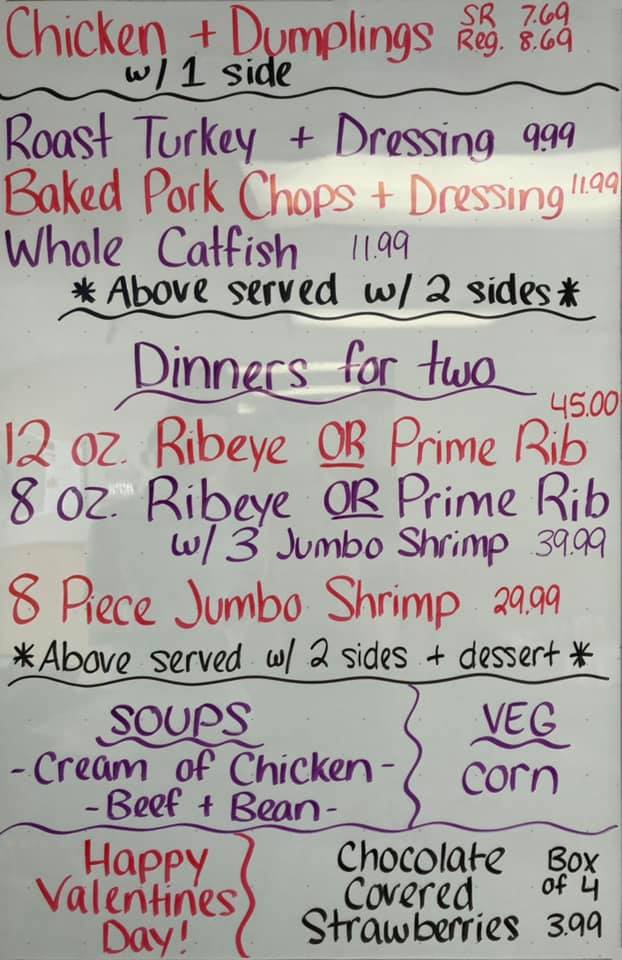 Chicken + Dumplings SR 7.69
Reg. 8.69
w/ 1 side
Roast Turkey + Dressing 9.99
Baked Pork Chops + Dressing 11.99
Whole Catfish 11.99
* Above served w/ 2 sides *
Dinners for two
45.00
12 oz. Ribeye OR Prime Rib
8 oz. Ribeye OR Prime Rib
w/ 3 Jumbo Shrimp 39.99
8 Piece Jumbo Shrimp 29.99
* Above served w/ 2 sides + dessert *
SOUPS
- Cream of Chicken -
- Beef + Bean -
VEG
Corn
Happy
Valentines
Day!
Chocolate
Covered
Strawberries
Box
of 4
3.99